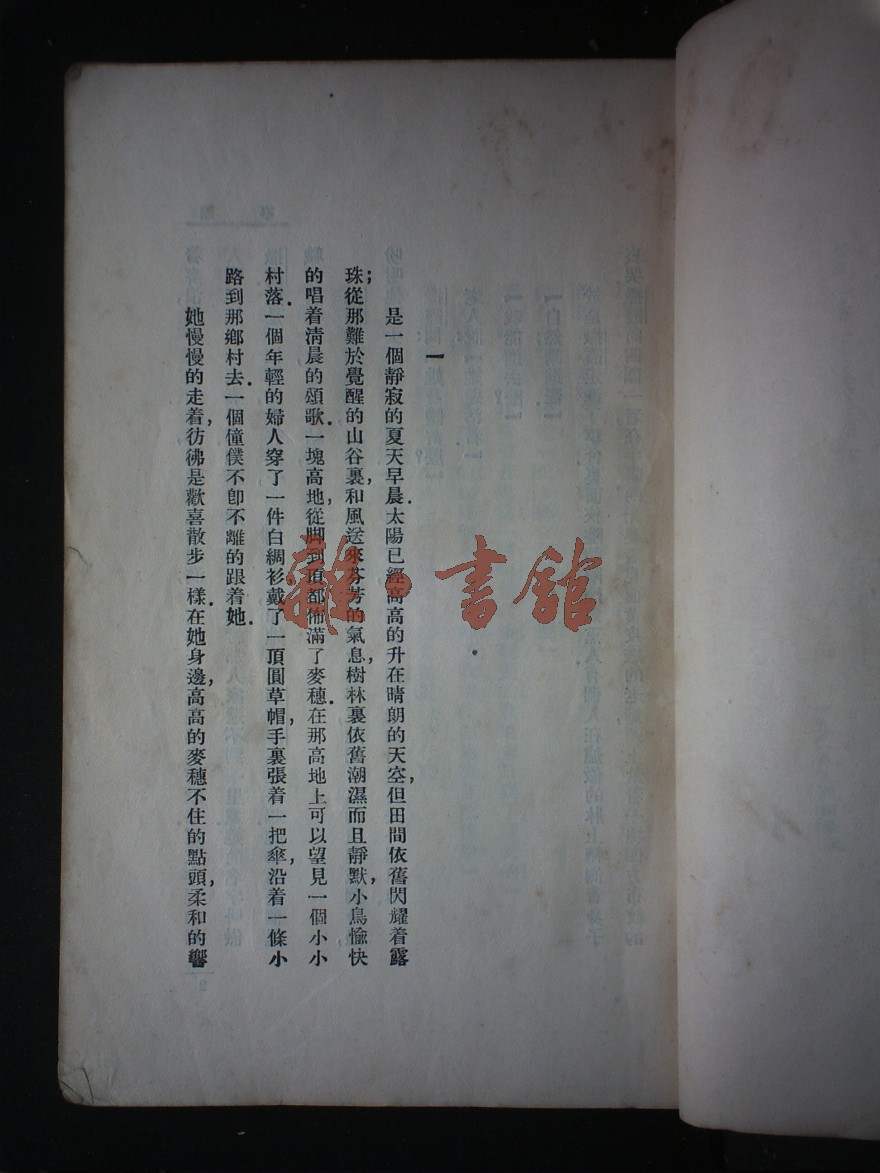 一
是一個靜寂的夏天早晨.太陽已經高高的升在晴朗的天空,但田間依舊閃耀着露
珠;從那難於覺醒的山谷裏,和風送來芬芳的氣息,樹林裏依舊潮濕而且靜默,小鳥愉快
的唱着清晨的頌歌.一塊高地,從脚到頂都佈滿了麥穗.在那高地上可以望見一個小小
村落.一個年輕的婦人穿了一件白綢衫,戴了一頂圓草帽,手裏張着一把傘,沿着一條小
路到那鄉村去.一個僮僕不卽不離的跟着她.
她慢慢的走着,彷彿是歡喜散步一樣.在她身邊,高高的麥穗不住的點頭,柔和的響
雜·書館